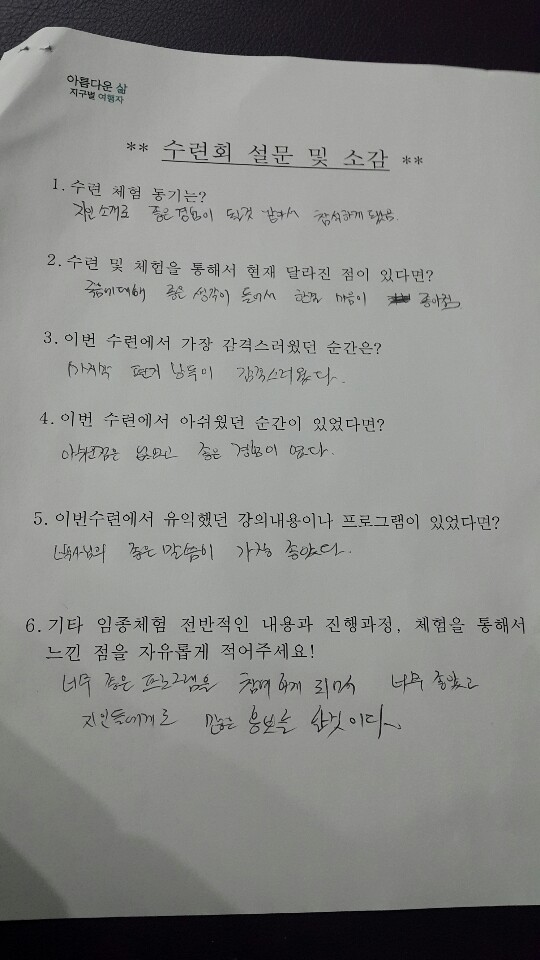 아름다운 삶
지구별 여행자
** 수련회 설문 및 소감 **
1. 수련 체험 동기는?
지인 소개로 좋은 경험이 될것 같아서 참석하게 됐음.
2. 수련 및 체험을 통해서 현재 달라진 점이 있다면?
죽음에 대해 좋은 생각이 들어서 한결 마음이 좋아짐
3. 이번 수련에서 가장 감격스러웠던 순간은?
마지막 편지 낭독이 감격스러웠다.
4. 이번 수련에서 아쉬웠던 순간이 있었다면?
아쉬운점은 없었고 좋은 경험이 였다.
5. 이번수련에서 유익했던 강의내용이나 프로그램이 있었다면?
좋은 말씀이 가장 좋았다.
6. 기타 임종체험 전반적인 내용과 진행과정, 체험을 통해서
느낀 점을 자유롭게 적어주세요!
너무 좋은 프로그램을 참여 하게 되면서 너무 좋았고
지인들에게도 많은 홍보를 할것이다.